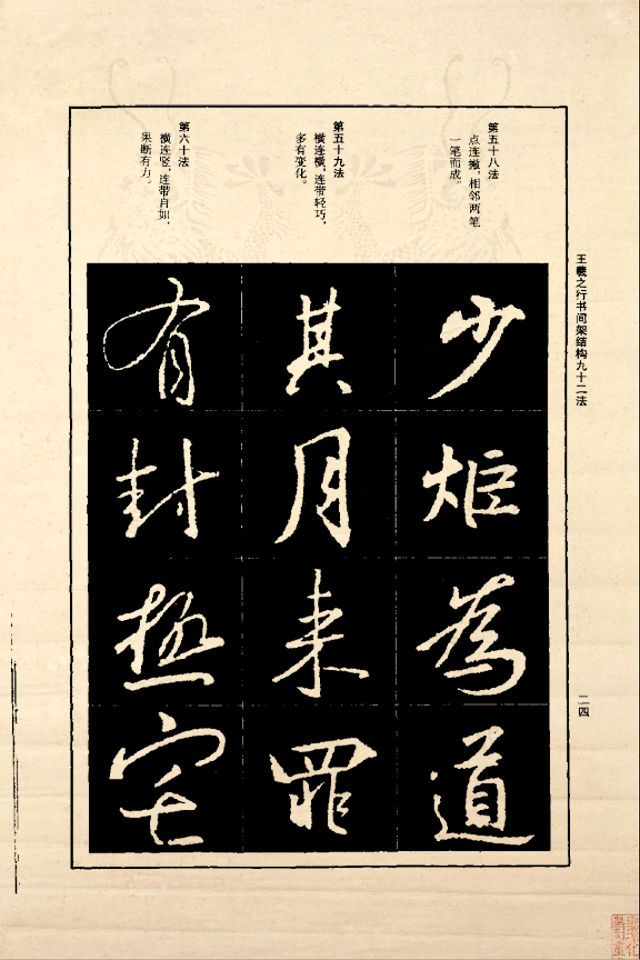 王羲之行书间架结构九十二法
第五十八法
点连撇,相邻两笔
一笔而成。
第五十九法
横连横,连带轻巧,
多有变化。
第六十法
横连竖,连带自如,
果断有力。
少炬為道
其月来罪
有封
二四